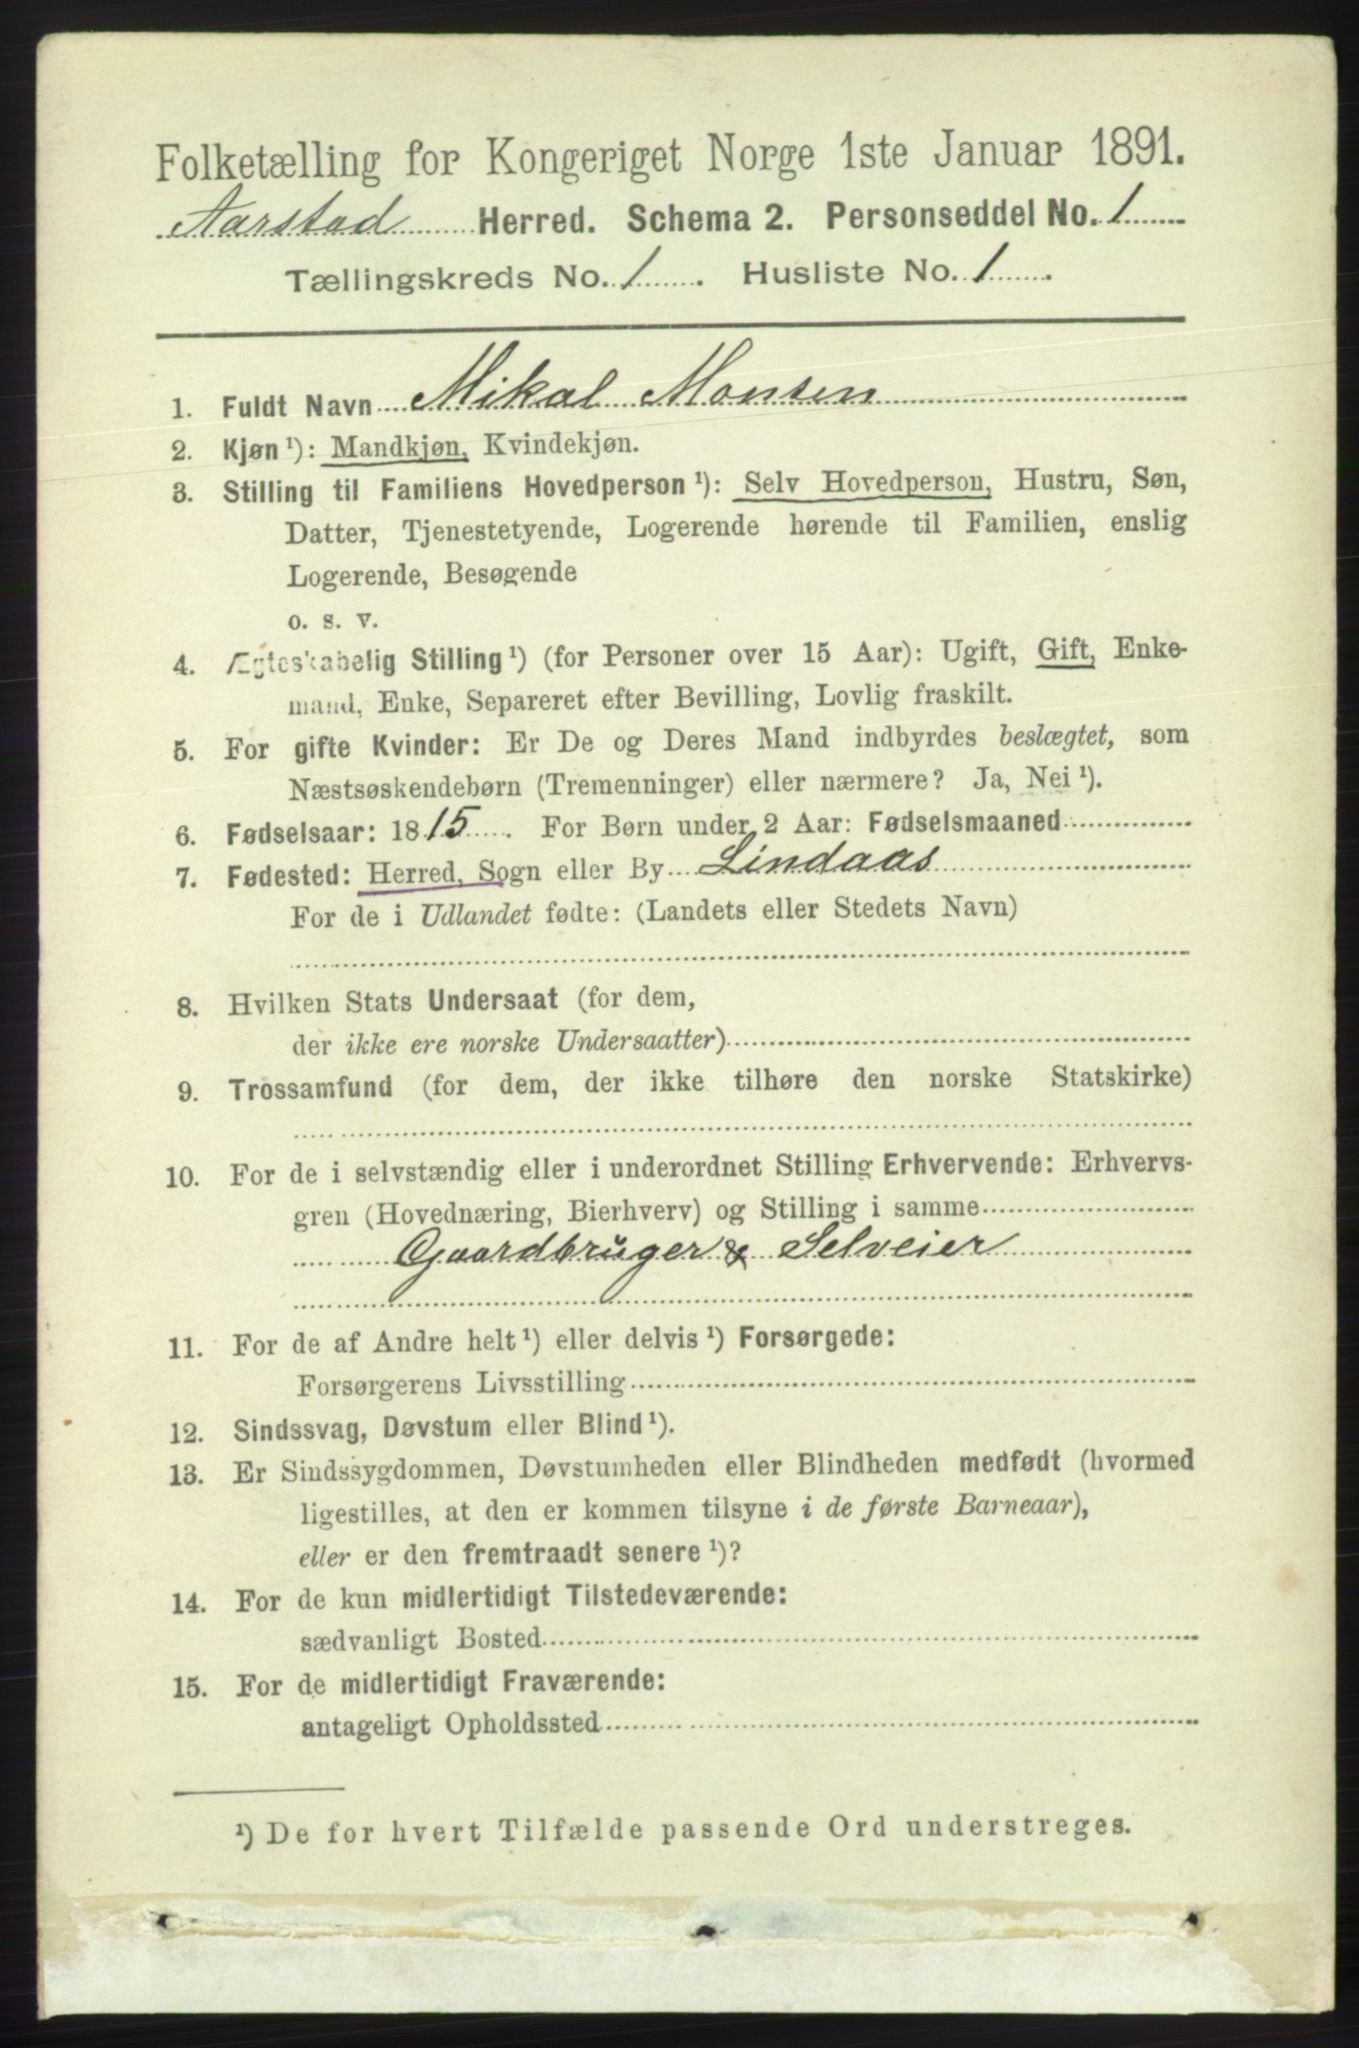 Folketælling for Kongeriget Norge 1ste Januar 1891.
Aarstad Herred. Schema 2. Personseddel No. 1
Tællingskreds No. 1. Husliste No. 1.
1. Fuldt Navn Mikal Monsen
2. Kjøn ¹): Mandkjøn, Kvindekjøn.
3. Stilling til Familiens Hovedperson ¹): Selv Hovedperson, Hustru, Søn,
Datter, Tjenestetyende, Logerende hørende til Familien, enslig
Logerende, Besøgende
o. s. v.
4. Ægteskabelig Stilling ¹) (for Personer over 15 Aar): Ugift, Gift, Enke-
mand, Enke, Separeret efter Bevilling, Lovlig fraskilt.
5. For gifte Kvinder: Er De og Deres Mand indbyrdes beslægtet, som
Næstsøskendebørn (Tremenninger) eller nærmere? Ja, Nei ¹).
6. Fødselsaar: 1815. For Børn under 2 Aar: Fødselsmaaned
7. Fødested: Herred, Sogn eller By Lindaas
For de i Udlandet fødte: (Landets eller Stedets Navn)
8. Hvilken Stats Undersaat (for dem,
der ikke ere norske Undersaatter)
9. Trossamfund (for dem, der ikke tilhøre den norske Statskirke)
10. For de i selvstændig eller i underordnet Stilling Erhvervende: Erhvervs-
gren (Hovednæring, Bierhverv) og Stilling i samme
Gaardbruger & Selveier
11. For de af Andre helt ¹) eller delvis ¹) Forsørgede:
Forsørgerens Livsstilling
12. Sindssvag, Døvstum eller Blind ¹).
13. Er Sindssygdommen, Døvstumheden eller Blindheden medfødt (hvormed
ligestilles, at den er kommen tilsyne i de første Barneaar),
eller er den fremtraadt senere ¹)?
14. For de kun midlertidigt Tilstedeværende:
sædvanligt Bosted
15. For de midlertidigt Fraværende:
antageligt Opholdssted
¹) De for hvert Tilfælde passende Ord understreges.